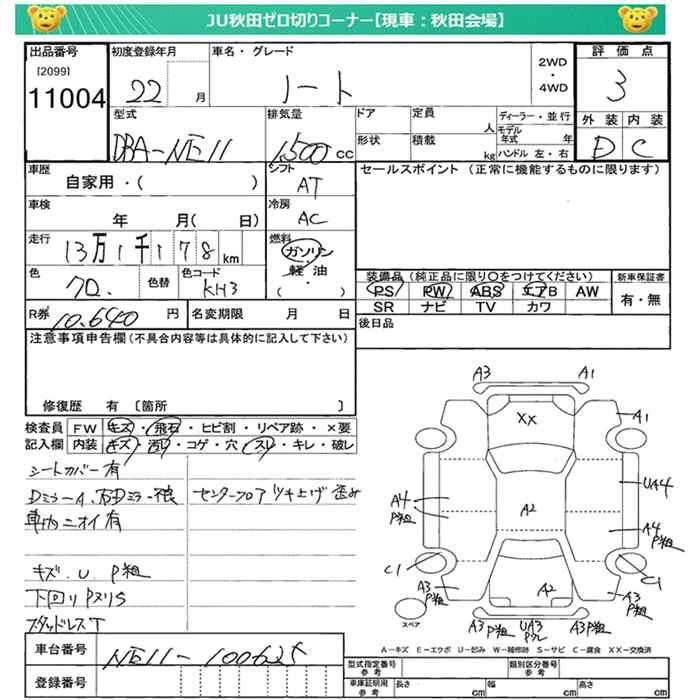 JU秋田ゼロ切りコーナー【現車:秋田会場】
出品番号 初度登録年月 車名・グレード 2WD・4WD 評価点
[2099]
11004 22 月 ノート 3
型式 排気量 ドア 定員 人 ディーラー・並行 外装 内装
モデル年式 年
DBA-NE11 1,500 cc 形状 積載 kg ハンドル 左・右 D C
車歴 シフト セールスポイント(正常に機能するものに限ります)
自家用・( ) AT
車検 冷房
年 月( 日) AC
走行 燃料
13万1千178km ガソリン・軽油
色 色替 色コード ( ) 装備品(純正品に限り○をつけてください) 新車保証書
KH3 PS PW ABS エアB AW 有・無
R券 10,640円 名変期限 月 日 SR ナビ TV カワ
注意事項申告欄(不具合内容等は具体的に記入して下さい) 後日品
修復歴 有 [箇所 ]
検査員 FW キズ・飛石・ヒビ割・リペア跡・×要
記入欄 内装 キズ・汚れ・コゲ・穴・スレ・キレ・破レ
シートカバー有
DミラーA、右Dミラー不良 センターフロアツキ上げ歪み
車内ニオイ有
キズ.U.P粗
下回りPヌリS
スタッドレスT
A3 A1
XX A1
UA4
A4 P粗 A2 A4 P粗
C1 C1
A3 P粗 A2 A3 P粗
スペア A3P粗 UA3 A3P粗
A-キズ E-エクボ U-凹み W-補修跡 S-サビ C-腐食 XX-交換済
車台番号 NE11-100625
型式指定番号 参考 類別区分番号 参考
登録番号 車庫証明用 参考 長さ cm 幅 cm 高さ cm